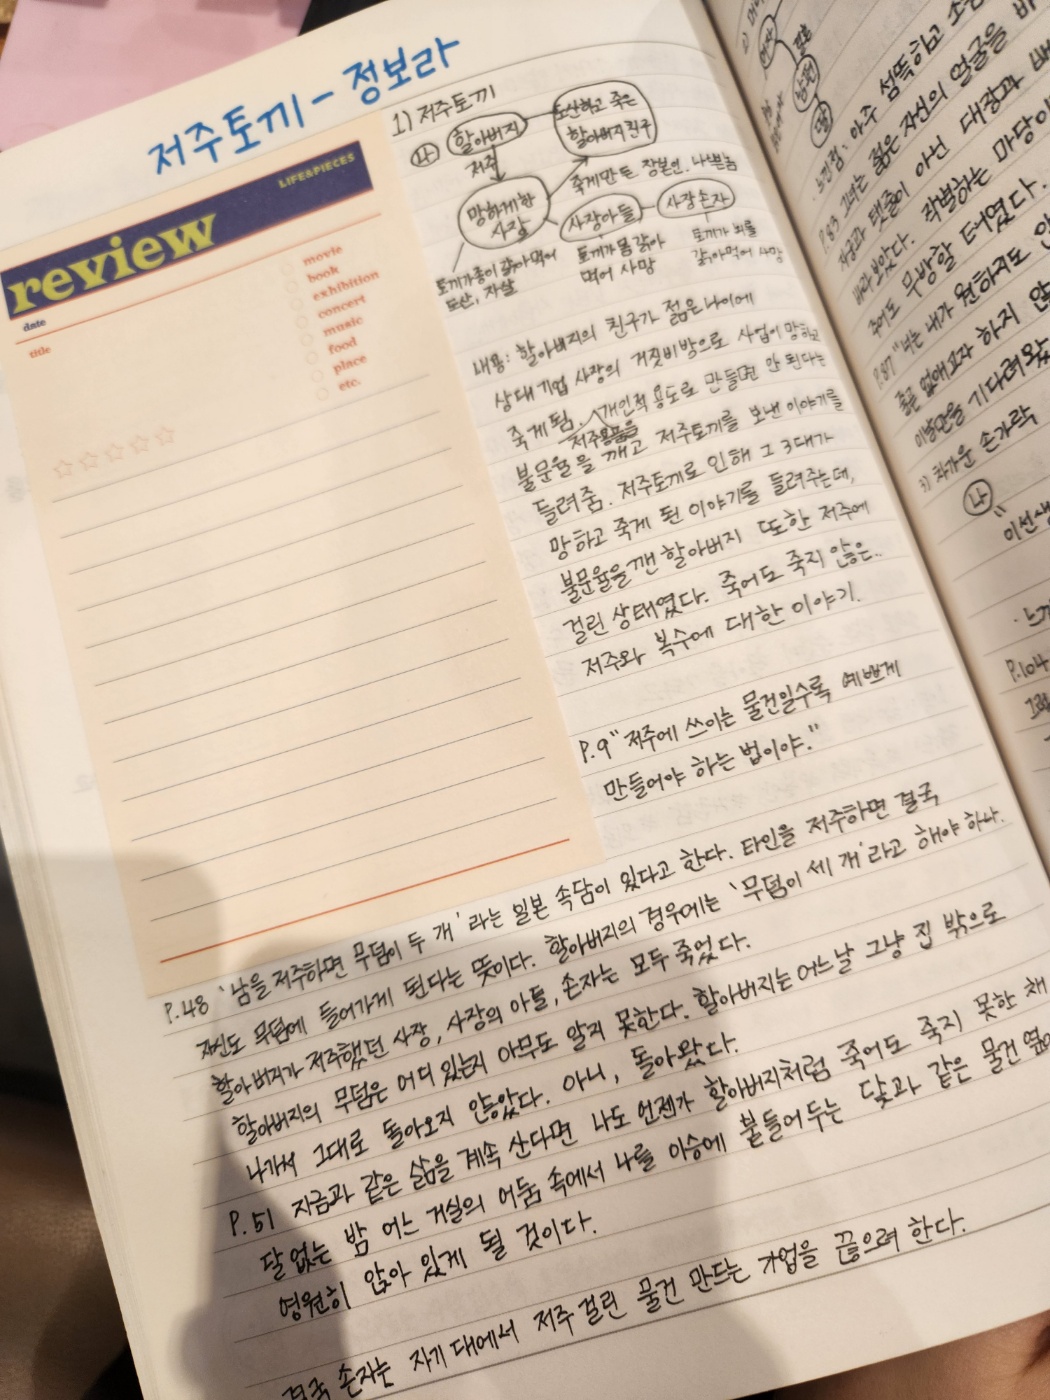 저주토끼 - 정보라
LIFE&PIECES
review
date
title
movie
book
exhibition
concert
music
food
place
etc.
1) 저주토끼
나
할아버지
도산하고 죽은
할아버지친구
저주
죽게만든 장본인. 나쁜놈
망하게한
사장
사장아들
사장손자
토끼가종이 갉아먹어
도산, 자살
토끼가 몸 갉아
먹어 사망
토끼가 뇌를
갉아먹어 사망
내용: 할아버지의 친구가 젊은 나이에
상대 기업 사장의 거짓비방으로 사업이 망하고
죽게 됨. 개인적 용도로 만들면 안 된다는
저주용품을
불문율을 깨고 저주토끼를 보낸 이야기를
들려줌. 저주토끼로 인해 그 3대가
망하고 죽게 된 이야기를 들려주는데,
불문율을깬 할아버지 또한 저주에
걸린 상태였다. 죽어도 죽지 않은..
저주와 복수에 대한 이야기.
P.9 "저주에 쓰이는 물건일수록 예쁘게
만들어야 하는 법이야."
P.48 '남을 저주하면 무덤이 두 개'라는 일본 속담이 있다고 한다. 타인을 저주하면 결국
자신도 무덤에 들어가게 된다는 뜻이다. 할아버지의 경우에는 '무덤이 세 개'라고 해야 하나.
할아버지가 저주했던 사장, 사장의 아들, 손자는 모두 죽었다.
할아버지의 무덤은 어디 있는지 아무도 알지 못한다. 할아버지는 어느날 그냥 집 밖으로
나가서 그대로 돌아오지 않았다. 아니, 돌아왔다.
P.51 지금과 같은 삶을 계속 산다면 나도 언젠가 할아버지처럼 죽어도 죽지 못한 채
달 없는 밤 어느 거실의 어둠 속에서 나를 이승에 붙들어두는 닻과 같은 물건 옆에
영원히 앉아 있게 될 것이다.
결국 손자는 자기 대에서 저주 걸린 물건 만드는 가업을 끊으려 한다.
남편
딸
느낀점: 아주 섬뜩하고
P.83 그녀는 젊은 자신의 얼굴을
지금과 탯줄이 아닌 대장과
내려 보았다. 작별하는 마당이
죽어도 무방할 터였다.
P.87 "너는 내가 원하지도
줄곧 없애고자 하지 않
이날만을 기다려왔
3) 차가운 손가락
나
"이선생
P.104